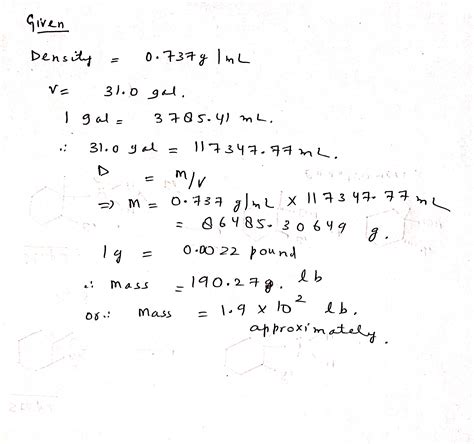 Given
Density = 0.737 g/mL
V = 31.0 gal.
1 gal = 3785.41 mL.
∴ 31.0 gal = 117347.77 mL.
D = m/v
⇒ m = 0.737 g/mL × 117347.77 mL
= 86485.30649 g.
1 g = 0.0022 pound
∴ mass = 190.27 g. lb
or ∴ mass = 1.9 × 10² lb.
approximately.